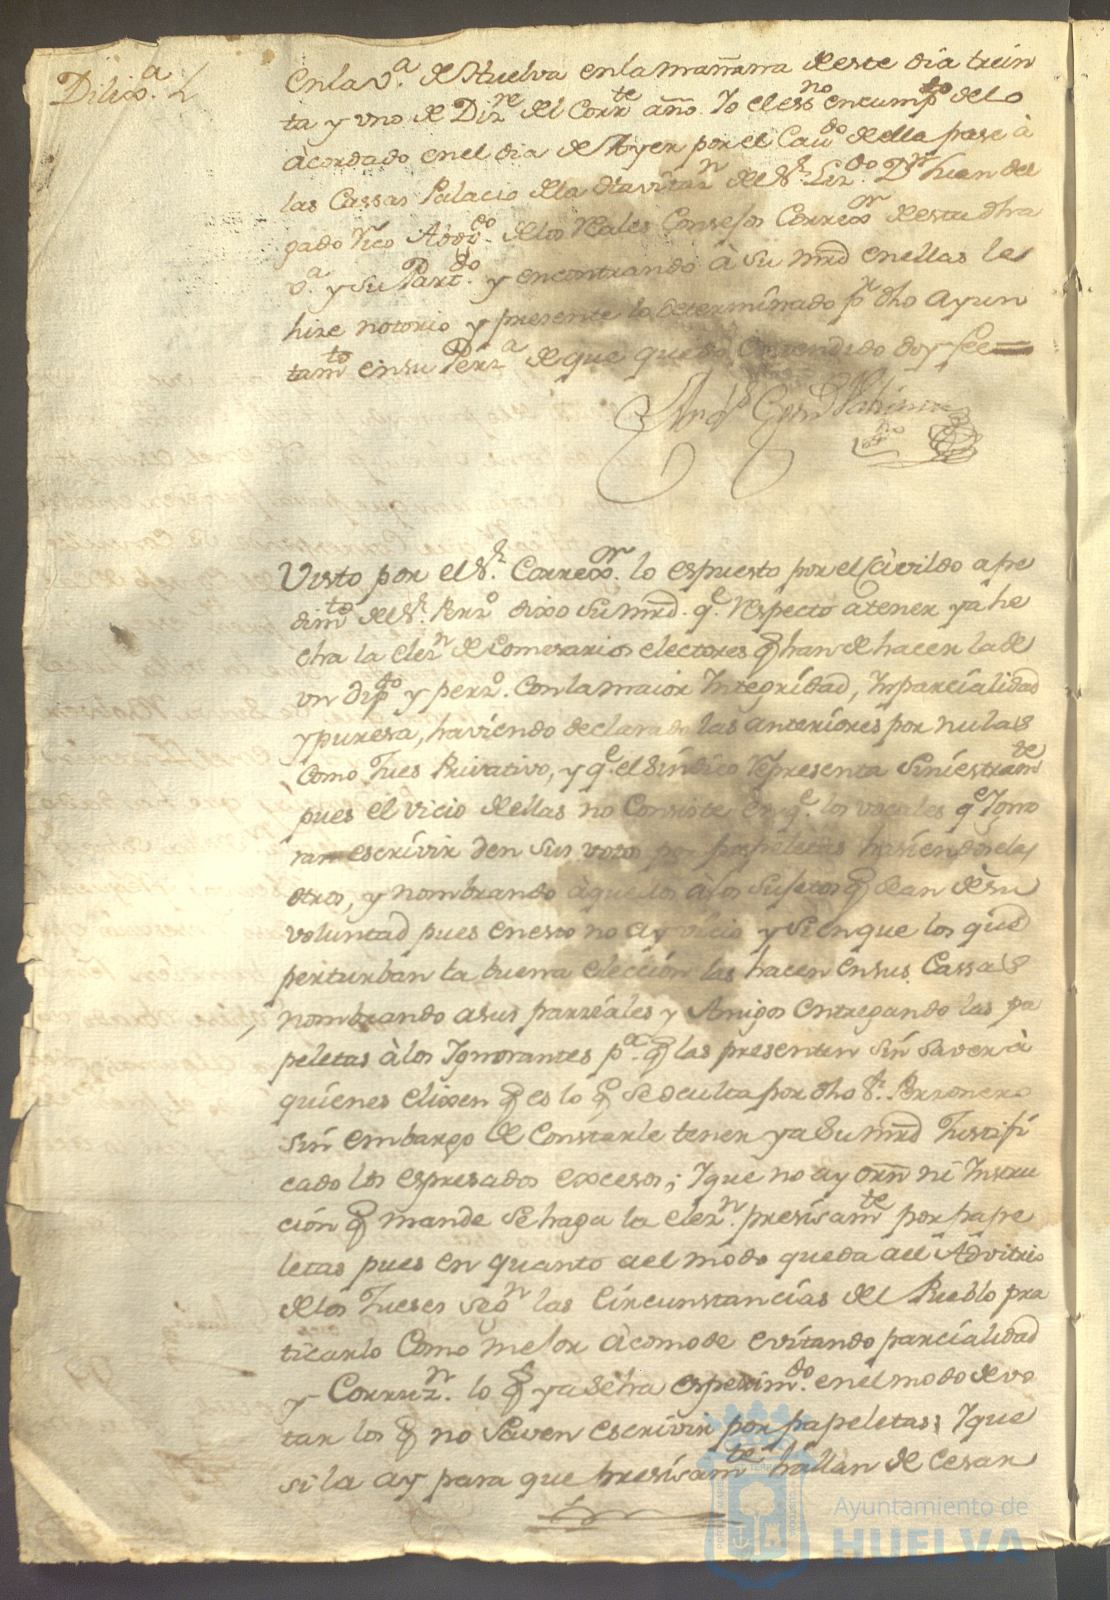 Dilig.ª
en la V.ª de Huelva en la mañana de este dia trein
ta y uno de Diz.re del Corr.te año. Yo el ess.no en cump.to de lo
àcordado en el dia de Ayer por el Cav.do de ella pase à
las Cassas Palacio de la havitaz.n del S.r Liz.do D.n Juan del
gado Rico Abog.do de los Reales Consejos Correg.or de esta dha
v.ª y su Part.do y encontrando à su mrd en ellas le
hize notorio y presente lo determinado p.r dho ayun
tam.to en su Perz.ª de que quedo entendido doy fee
Visto por el S.r Correg.or lo espuesto por el Cavildo a pe
dim.to del S.r Perz.o dixo su mrd. q.e respecto a tener ya he
cha la elez.n de Comisarios electores q han de hacer la de
un dip.do y perz.o con la maior Integridad, Imparcialidad
y puresa, haviendo declarado las anteriores por nulas
como Jues Privativo, y q.e el Síndico representa
pues el vicio de ellas no consiste en q.e los vocales q.e Igno
ran escrivir den sus votos por papeletas hasiendoselas
otros, y nombrando àquellos à los sujetos q dan de su
voluntad pues en esto no ay vicio y si en que los que
perturban la buena elección las hacen en sus Cassas
nombrando a sus parziales y Amigos entregando las pa
peletas à los Ignorantes p.ª q las presenten sin saver à
quienes elixen q es lo q se oculta por dho S.r Perzonero
sin embargo de constarle tener ya su mrd Justifi
cado los espresados excesos; Y que no ay orn ni Instru
ción q mande se haga la elez.n presisam.te por pape
letas pues en quanto a el modo queda a el Advitrio
de los Jueses seg.n las circunstancias del Pueblo pra
ticarlo como mejor àcomode evitando parcialidad
y Corruz.n lo q ya se ha esperim.do en el modo de vo
tar los q no saven escrivir por papeletas; Y que
si la ay para que presisam.te hallan de cesar
Ayuntamiento de
HUELVA